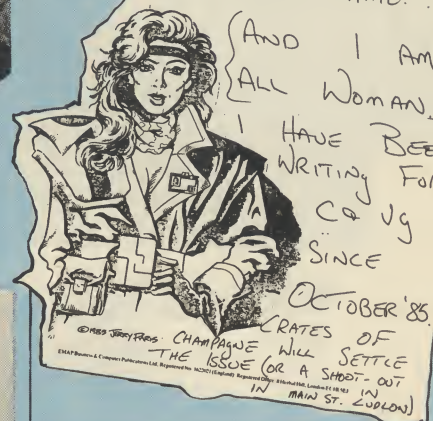 AND I AM
ALL WOMAN.
I HAVE BEE
WRITING FOR
C&VG
SINCE
OCTOBER '85.
CRATES OF
CHAMPAGNE WILL SETTLE
THE ISSUE (OR A SHOOT-OUT
IN MAIN ST. LUDLOW)
©1985 JERRY PARIS
EMAP Business & Computer Publications Ltd. Registered No. (England) Registered Office: